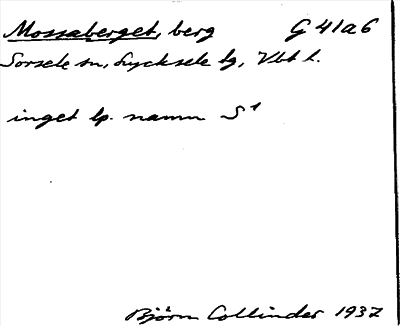 Mossaberget, berg G 41a6
Sorsele sn, Lycksele lg, Vbt l.
inget lp. namn S¹
Björn Collinder 1937